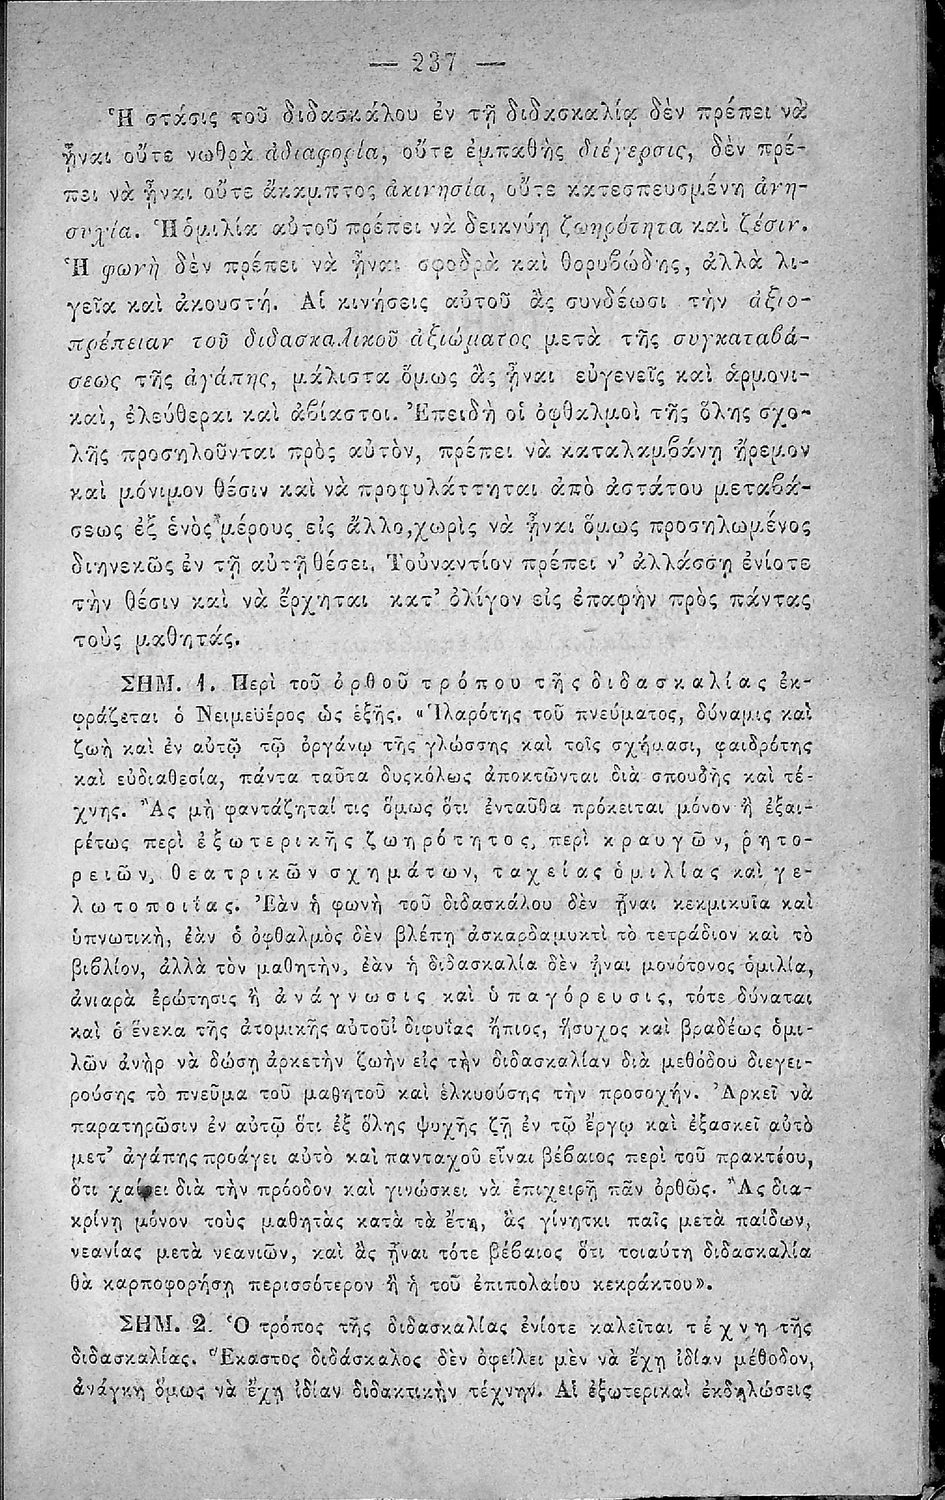 — 237 —
Ἡ στάσις τοῦ διδασκάλου ἐν τῇ διδασκαλίᾳ δὲν πρέπει νὰ
ἦναι οὔτε νωθρὰ ἀδιαφορία, οὔτε ἐμπαθὴς διέγερσις, δὲν πρέ-
πει νὰ ἦναι οὔτε ἄκαμπτος ἀκινησία, οὔτε κατεσπευσμένη ἀνη-
συχία. Ἡ ὁμιλία αὐτοῦ πρέπει νὰ δεικνύῃ ζωηρότητα καὶ ζέσιν.
Ἡ φωνὴ δὲν πρέπει νὰ ἦναι σφοδρὰ καὶ θορυβώδης, ἀλλὰ λι-
γεῖα καὶ ἀκουστή. Αἱ κινήσεις αὐτοῦ ἂς συνδέωσι τὴν ἀξιο-
πρέπειαν τοῦ διδασκαλικοῦ ἀξιώματος μετὰ τῆς συγκαταβά-
σεως τῆς ἀγάπης, μάλιστα ὅμως ἂς ἦναι εὐγενεῖς καὶ ἁρμονι-
καί, ἐλεύθεραι καὶ ἀβίαστοι. Ἐπειδὴ οἱ ὀφθαλμοὶ τῆς ὅλης σχο-
λῆς προσηλοῦνται πρὸς αὐτὸν, πρέπει νὰ καταλαμβάνῃ ἤρεμον
καὶ μόνιμον θέσιν καὶ νὰ προφυλάττηται ἀπὸ ἀστάτου μεταβά-
σεως ἐξ ἑνὸς μέρους εἰς ἄλλο, χωρὶς νὰ ἦναι ὅμως προσηλωμένος
διηνεκῶς ἐν τῇ αὐτῇ θέσει. Τοὐναντίον πρέπει ν’ ἀλλάσσῃ ἐνίοτε
τὴν θέσιν καὶ νὰ ἔρχηται κατ’ ὀλίγον εἰς ἐπαφὴν πρὸς πάντας
τοὺς μαθητάς.
ΣΗΜ. 1. Περὶ τοῦ ὀρθοῦ τρόπου τῆς διδασκαλίας ἐκ-
φράζεται ὁ Νειμεϋέρος ὡς ἑξῆς. «Ἱλαρότης τοῦ πνεύματος, δύναμις καὶ
ζωὴ καὶ ἐν αὐτῷ τῷ ὀργάνῳ τῆς γλώσσης καὶ τοῖς σχήμασι, φαιδρότης
καὶ εὐδιαθεσία, πάντα ταῦτα δυσκόλως ἀποκτῶνται διὰ σπουδῆς καὶ τέ-
χνης. Ἂς μὴ φαντάζηταί τις ὅμως ὅτι ἐνταῦθα πρόκειται μόνον ἢ ἐξαι-
ρέτως περὶ ἐξωτερικῆς ζωηρότητος, περὶ κραυγῶν, ῥητο-
ρειῶν, θεατρικῶν σχημάτων, ταχείας ὁμιλίας καὶ γε-
λωτοποιΐας. Ἐὰν ἡ φωνὴ τοῦ διδασκάλου δὲν ἦναι κεκμικυῖα καὶ
ὑπνωτικὴ, ἐὰν ὁ ὀφθαλμὸς δὲν βλέπῃ ἀσκαρδαμυκτὶ τὸ τετράδιον καὶ τὸ
βιβλίον, ἀλλὰ τὸν μαθητὴν, ἐὰν ἡ διδασκαλία δὲν ἦναι μονότονος ὁμιλία,
ἀνιαρὰ ἐρώτησις ἢ ἀνάγνωσις καὶ ὑπαγόρευσις, τότε δύναται
καὶ ὁ ἕνεκα τῆς ἀτομικῆς αὐτοῦ ἰδιφυΐας ἤπιος, ἥσυχος καὶ βραδέως ὁμι-
λῶν ἀνὴρ νὰ δώσῃ ἀρκετὴν ζωὴν εἰς τὴν διδασκαλίαν διὰ μεθόδου διεγει-
ρούσης τὸ πνεῦμα τοῦ μαθητοῦ καὶ ἑλκυούσης τὴν προσοχήν. Ἀρκεῖ νὰ
παρατηρῶσιν ἐν αὐτῷ ὅτι ἐξ ὅλης ψυχῆς ζῇ ἐν τῷ ἔργῳ καὶ ἐξασκεῖ αὐτὸ
μετ’ ἀγάπης προάγει αὐτὸ καὶ πανταχοῦ εἶναι βέβαιος περὶ τοῦ πρακτέου,
ὅτι χαίρει διὰ τὴν πρόοδον καὶ γινώσκει νὰ ἐπιχειρῇ πᾶν ὀρθῶς. Ἂς δια-
κρίνῃ μόνον τοὺς μαθητὰς κατὰ τὰ ἔτη, ἂς γίνηται παῖς μετὰ παίδων,
νεανίας μετὰ νεανιῶν, καὶ ἂς ᾖναι τότε βέβαιος ὅτι τοιαύτη διδασκαλία
θὰ καρποφορήσῃ περισσότερον ἢ ἡ τοῦ ἐπιπολαίου κεκράκτου».
ΣΗΜ. 2. Ὁ τρόπος τῆς διδασκαλίας ἐνίοτε καλεῖται τέχνη τῆς
διδασκαλίας. Ἕκαστος διδάσκαλος δὲν ὀφείλει μὲν νὰ ἔχῃ ἰδίαν μέθοδον,
ἀνάγκη ὅμως νὰ ἔχῃ ἰδίαν διδακτικὴν τέχνην. Αἱ ἐξωτερικαὶ ἐκδηλώσεις